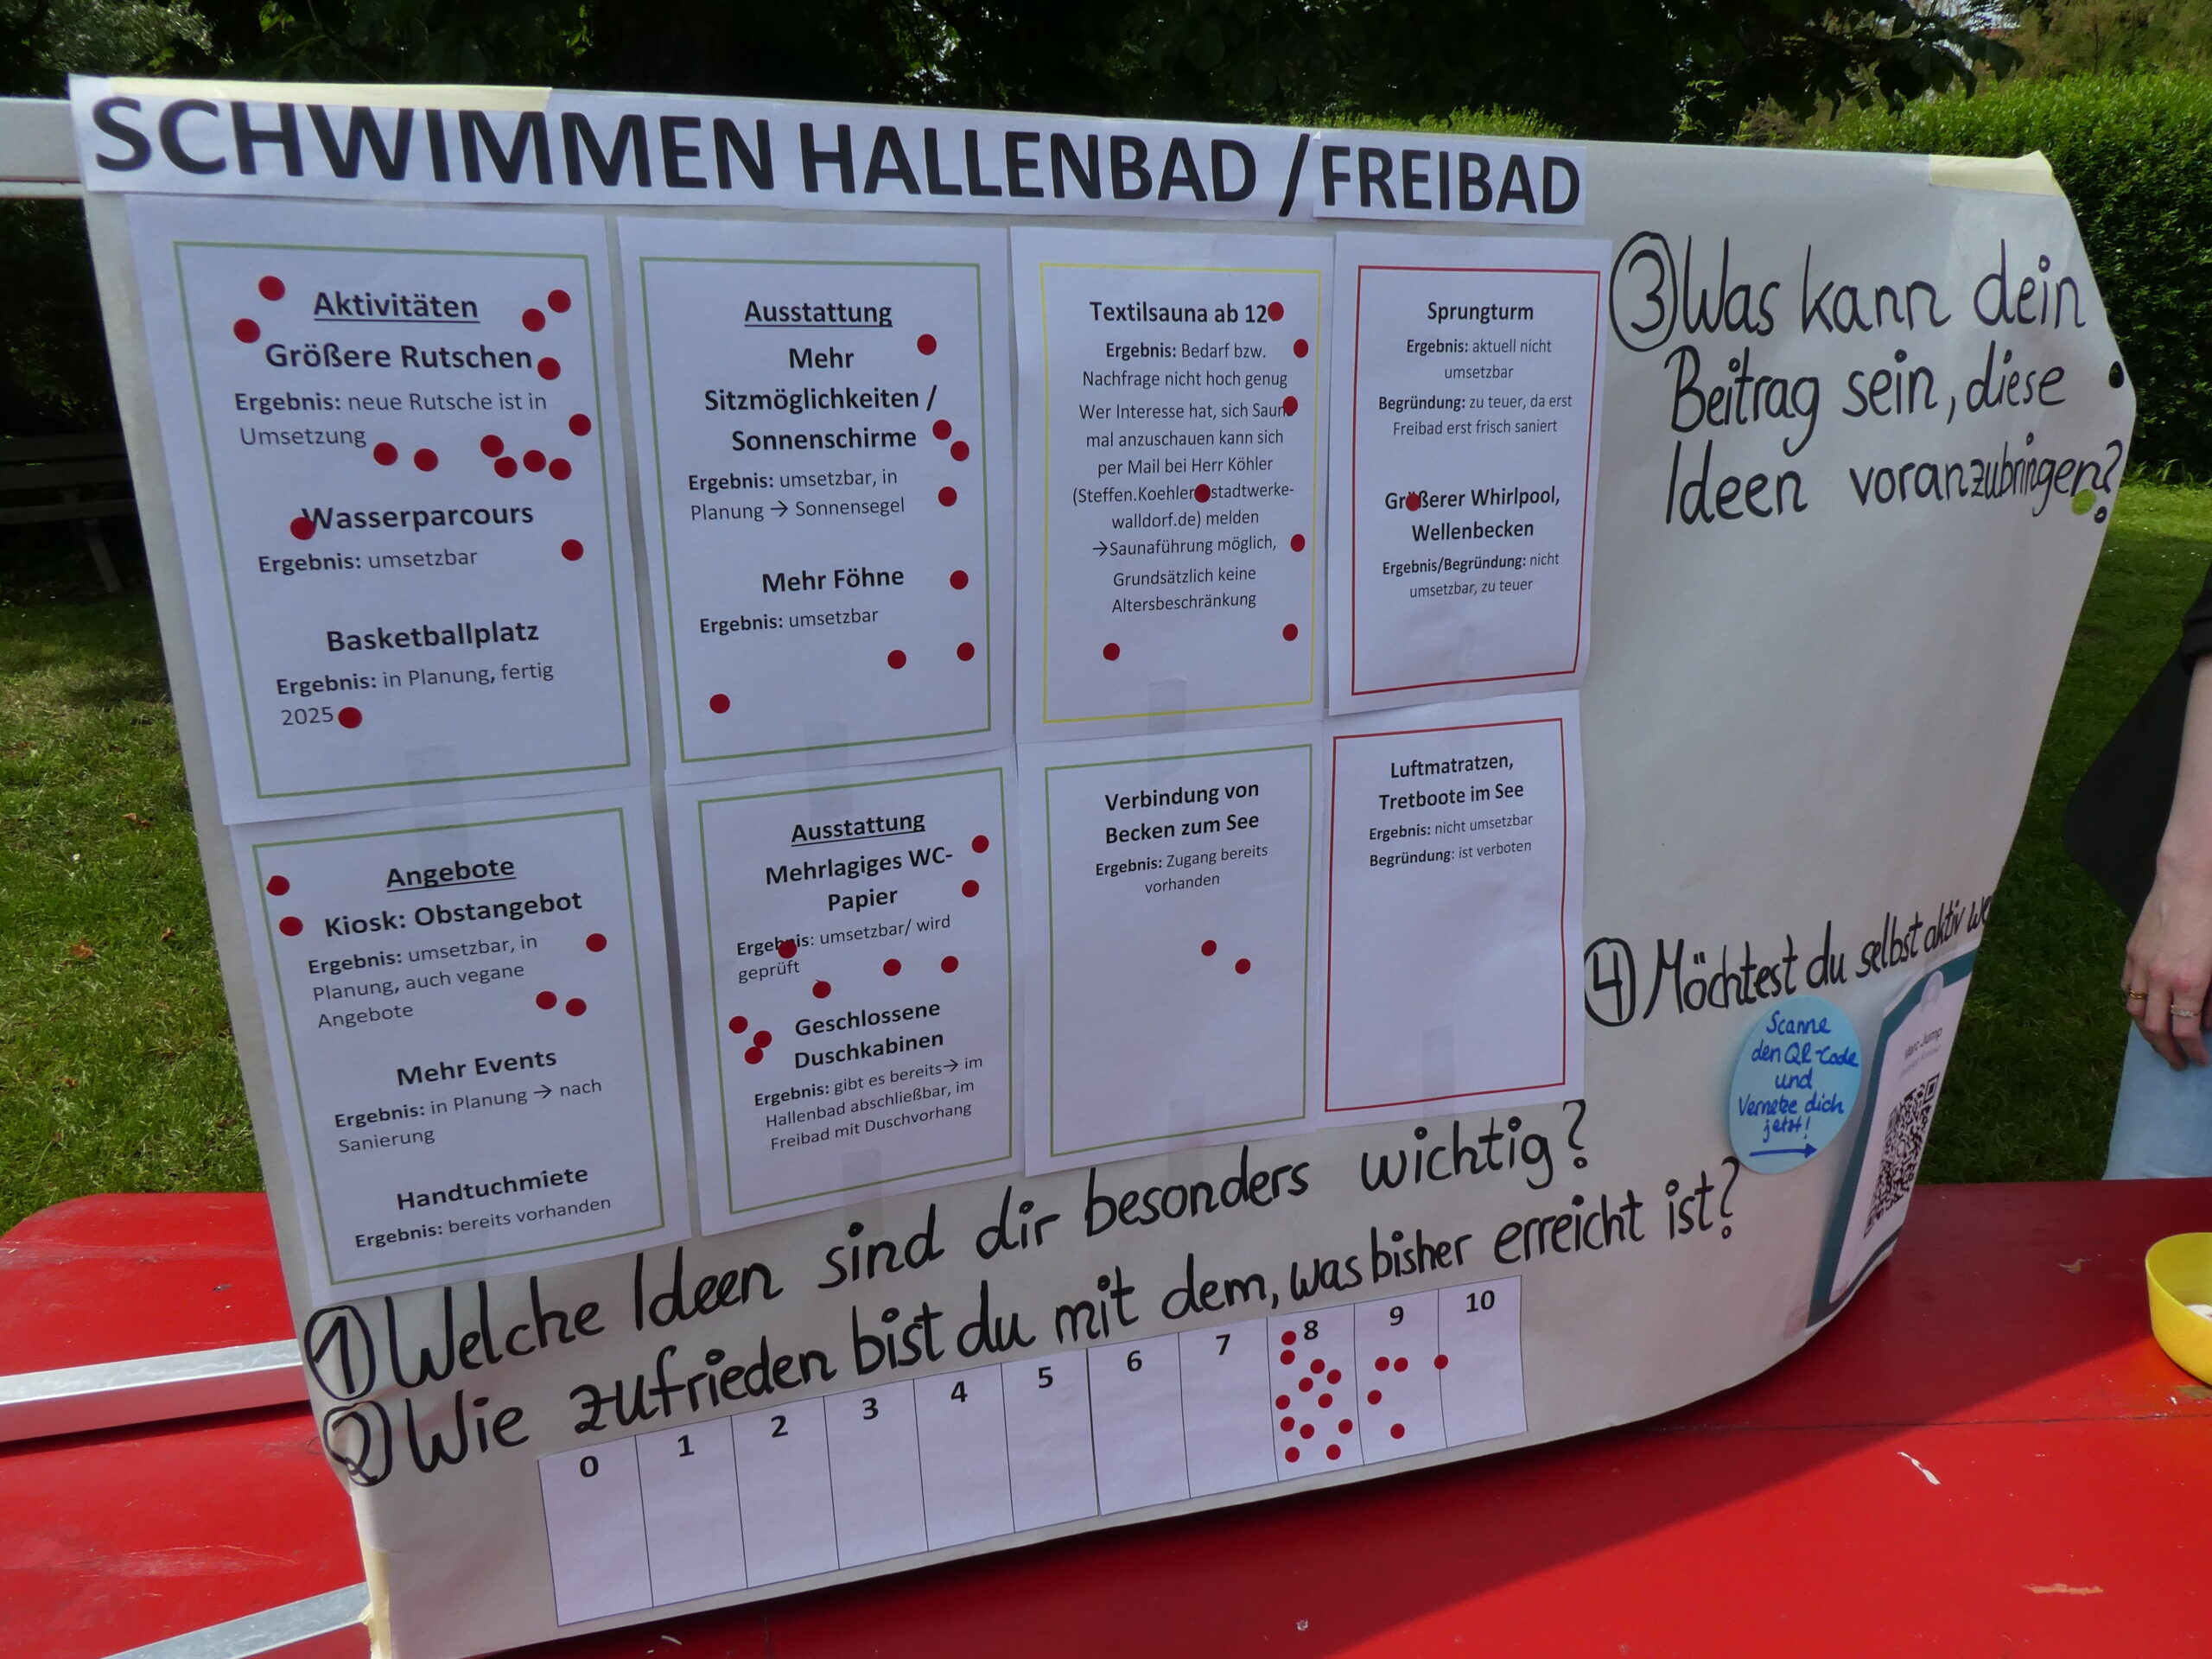 SCHWIMMEN HALLENBAD / FREIBAD
Aktivitäten
Größere Rutschen
Ergebnis: neue Rutsche ist in
Umsetzung
Wasserparcours
Ergebnis: umsetzbar
Basketballplatz
Ergebnis: in Planung, fertig
2025
Ausstattung
Mehr
Sitzmöglichkeiten /
Sonnenschirme
Ergebnis: umsetzbar, in
Planung → Sonnensegel
Mehr Föhne
Ergebnis: umsetzbar
Textilsauna ab 12
Ergebnis: Bedarf bzw.
Nachfrage nicht hoch genug
Wer Interesse hat, sich Sauna
mal anzuschauen kann sich
per Mail bei Herr Köhler
(Steffen.Koehler@stadtwerke-
walldorf.de) melden
→Saunaführung möglich,
Grundsätzlich keine
Altersbeschränkung
Sprungturm
Ergebnis: aktuell nicht
umsetzbar
Begründung: zu teuer, da erst
Freibad erst frisch saniert
Größerer Whirlpool,
Wellenbecken
Ergebnis/Begründung: nicht
umsetzbar, zu teuer
Angebote
Kiosk: Obstangebot
Ergebnis: umsetzbar, in
Planung, auch vegane
Angebote
Mehr Events
Ergebnis: in Planung → nach
Sanierung
Handtuchmiete
Ergebnis: bereits vorhanden
Ausstattung
Mehrlagiges WC-
Papier
Ergebnis: umsetzbar/ wird
geprüft
Geschlossene
Duschkabinen
Ergebnis: gibt es bereits→ im
Hallenbad abschließbar, im
Freibad mit Duschvorhang
Verbindung von
Becken zum See
Ergebnis: Zugang bereits
vorhanden
Luftmatratzen,
Tretboote im See
Ergebnis: nicht umsetzbar
Begründung: ist verboten
③ Was kann dein
Beitrag sein, diese
Ideen voranzubringen?
④ Möchtest du selbst aktiv we
Scanne
den QR-Code
und
Vernetze dich
jetzt!
① Welche Ideen sind dir besonders wichtig?
② Wie zufrieden bist du mit dem, was bisher erreicht ist?
0 1 2 3 4 5 6 7 8 9 10